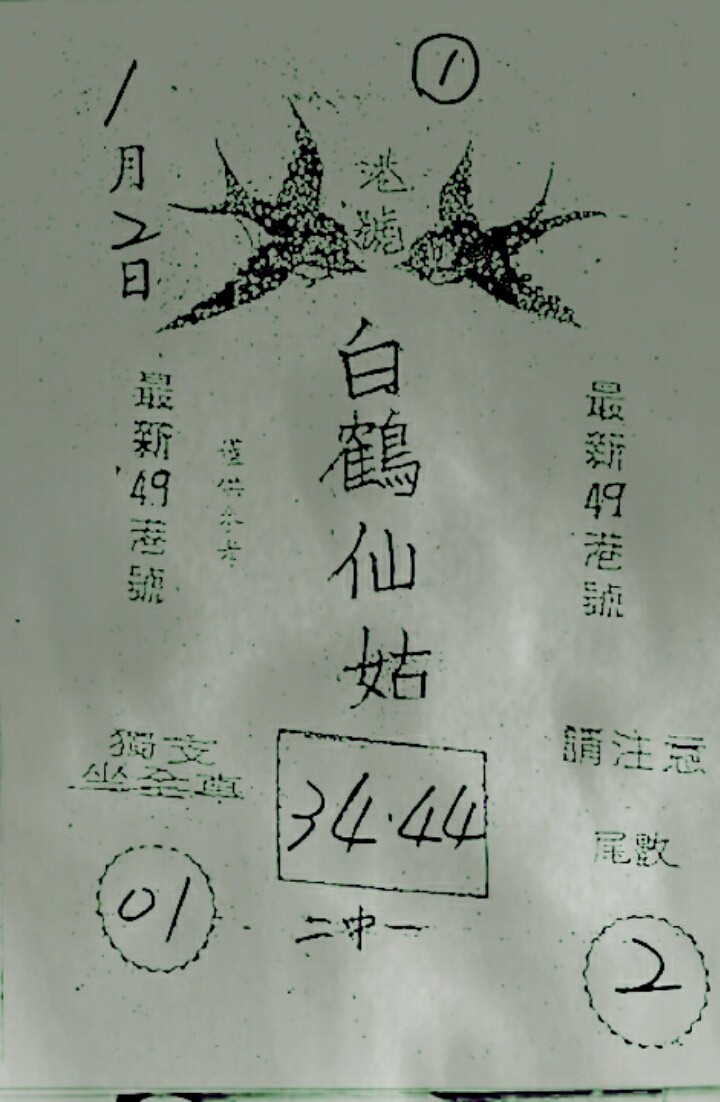 1
1月2日
港號
白鶴仙姑
最新49港號
僅供參考
最新49港號
獨支
坐全車
01
34.44
二中一
請注意
尾數
2